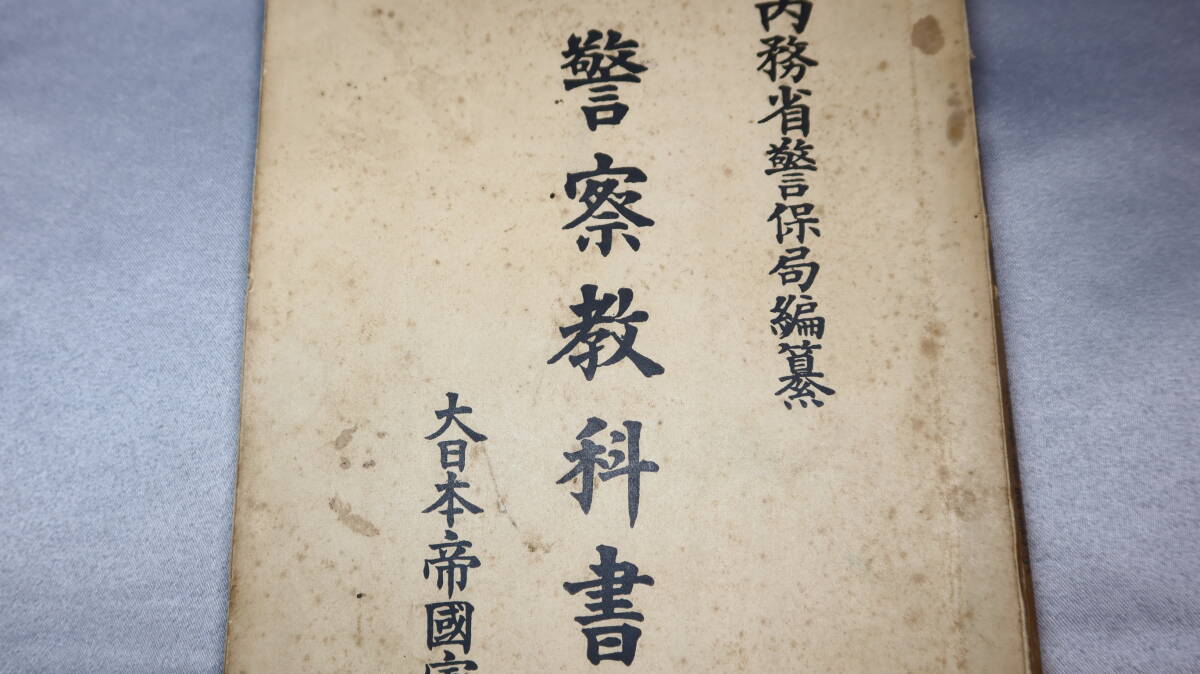 内務省警保局編纂
警察教科書
大日本帝國